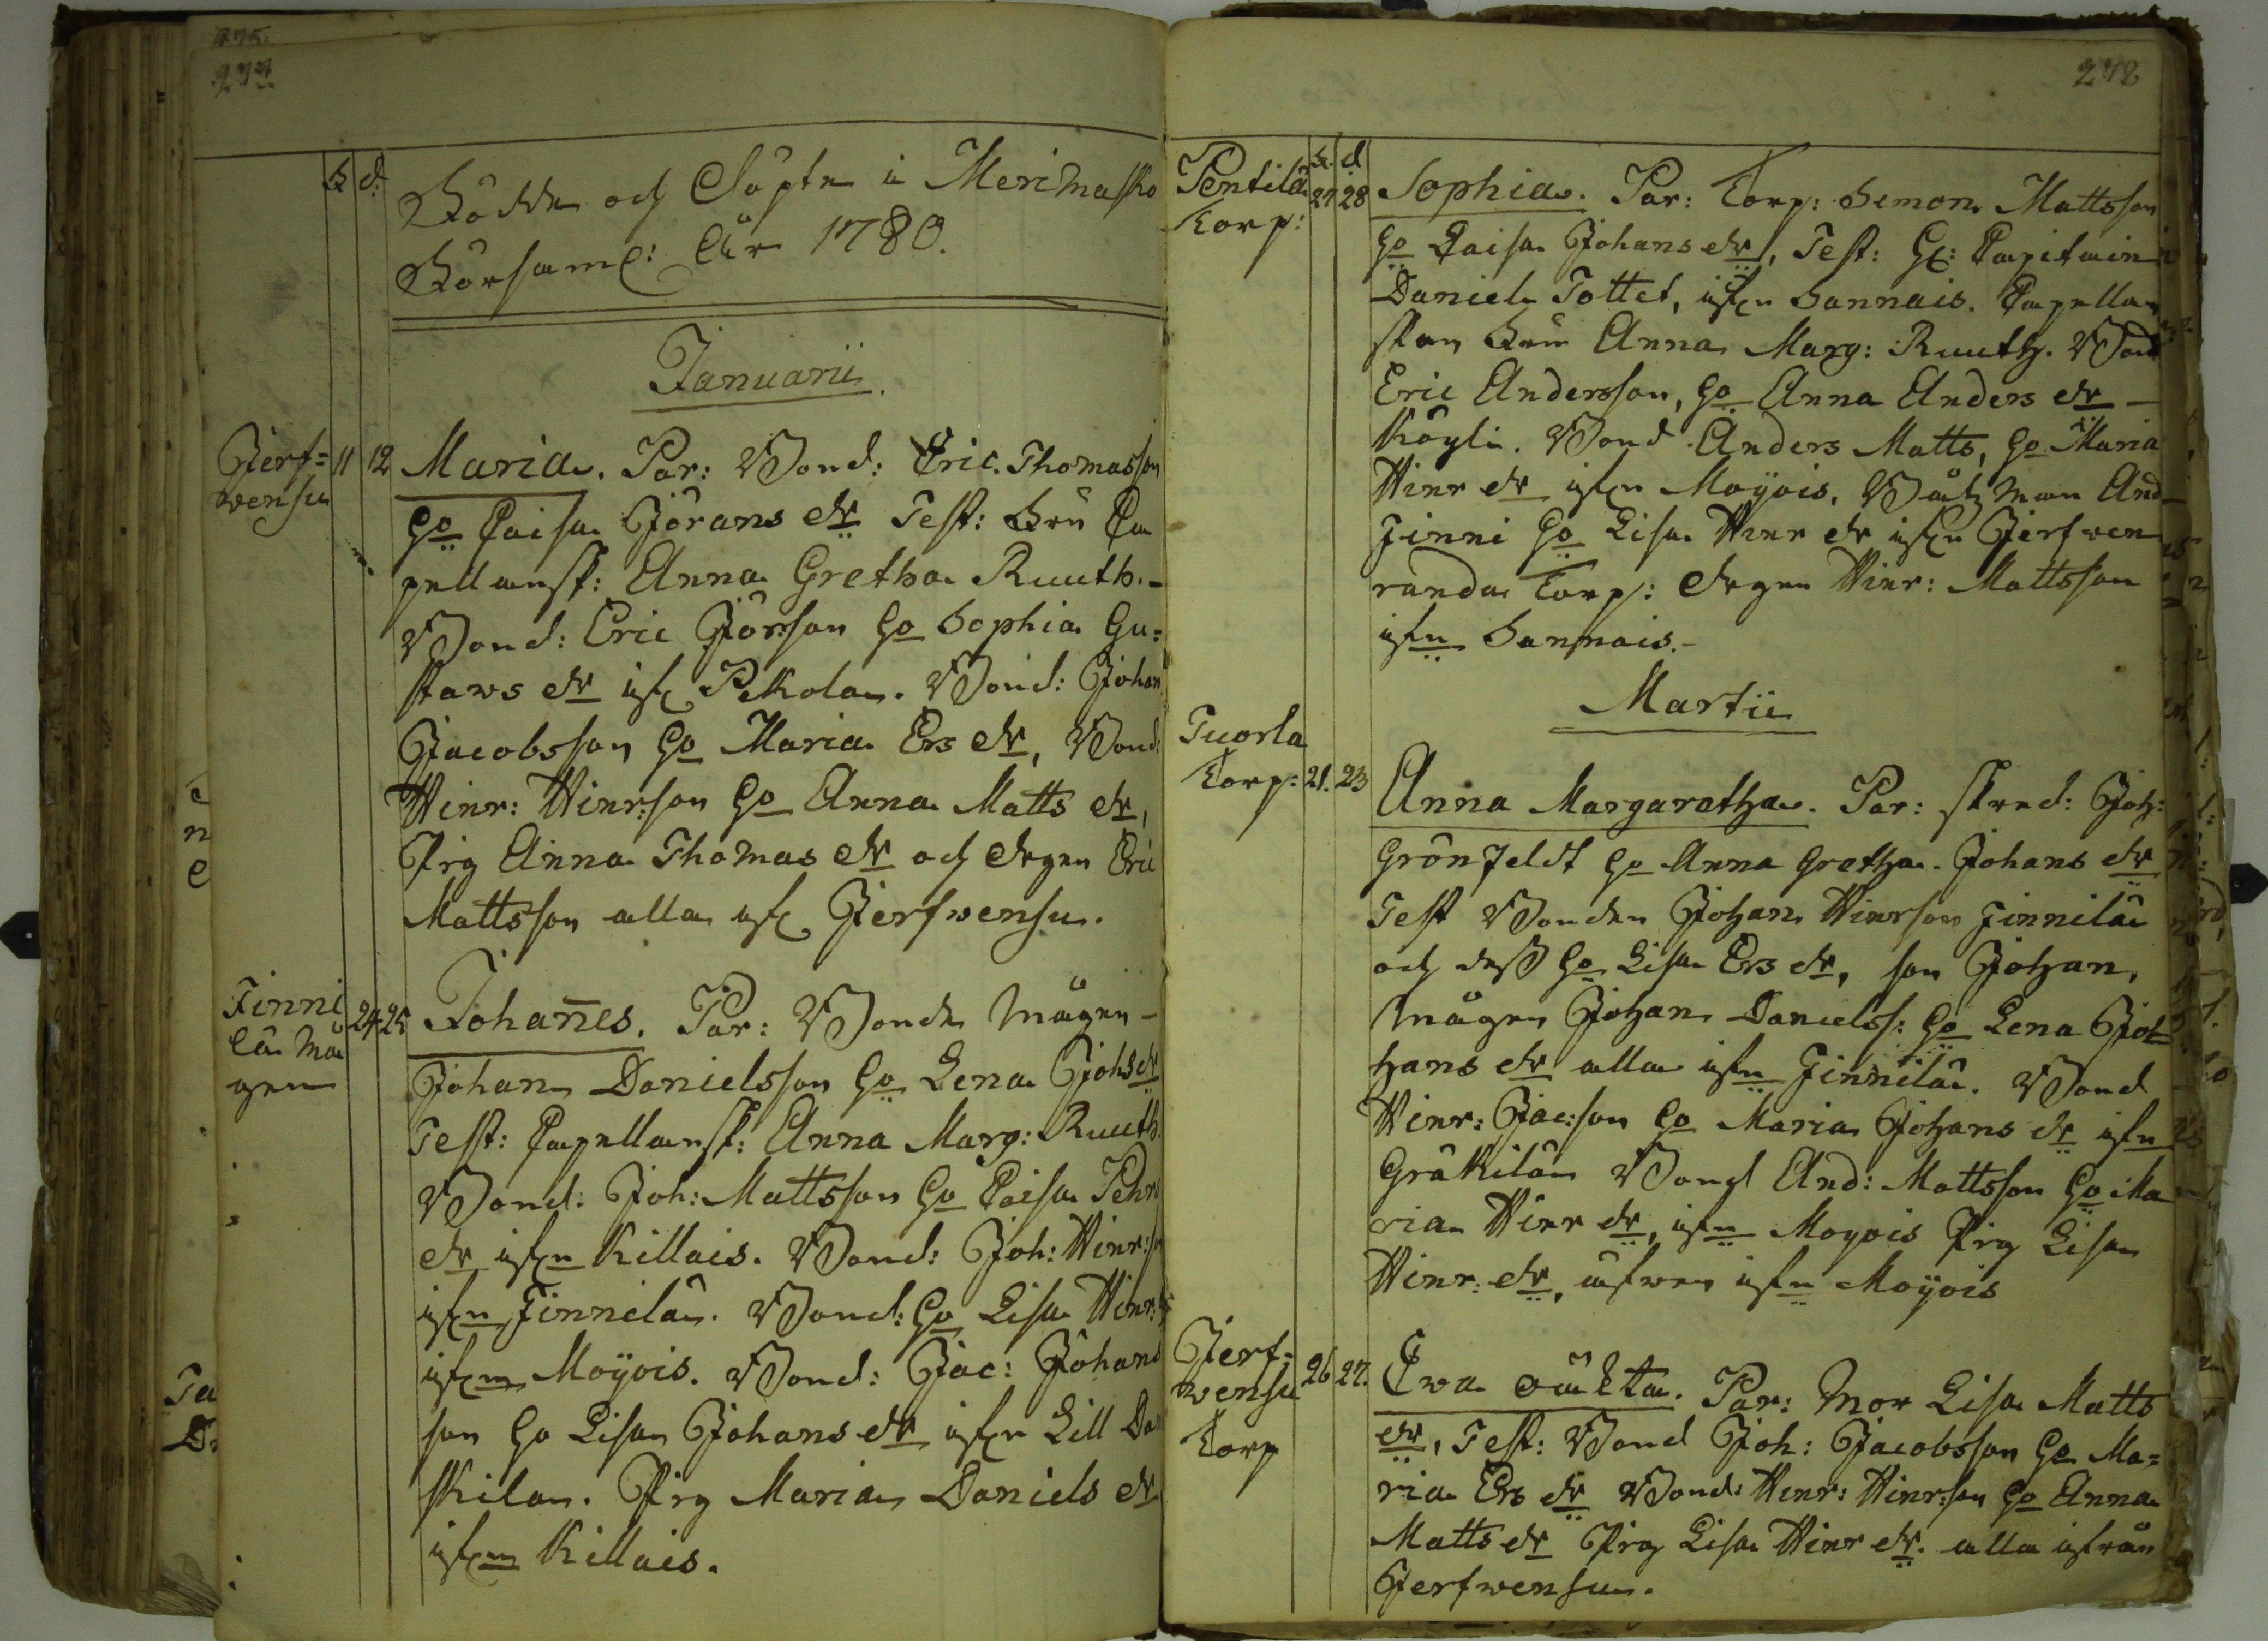 275.
277
f d:
Födde och Döpte i Merimasko
Församl: År 1780.
Januarii
Jerf= 11 12 Maria. Par: Bond: Eric Thomasson
wensu
Ho Caisa Jörans dr Test: Fru Ca
pellansk: Anna Gretha Ruuth.-
Bond: Eric Jörsson Ho Sophia Gu=
stavs dr ifr Pekola. Bond: Johan
Jacobsson Ho Maria Ers dr, Bond:
Hinr: Hinrson Ho Anna Matts dr,
Pig Anna Thomas dr och drgen Eric
Mattsson alla ifr Jerfwensu.
Finni 24 25 Johannes. Par: Bonde mågen
lä må
gen
Johan Danielsson Ho Lena Johs dr
Test: Capellansk: Anna Marg: Ruuth.
Bond: Joh: Mattsson Ho Caisa Pehrs
dr ifrn Killais. Bond: Joh: Hinr:son
ifrn Finnilä. Bond: Ho Lisa Hinr:
ifrn Moyois. Bond: Jac: Johans
son Ho Lisa Johans dr ifrn Lill Da
skila. Pig Maria Daniels dr
ifrn Killais.
272
Pentilä f. d
Torp: 27 28 Sophia. Par: Torp: Simon Mattsson
Ho Caisa Johans dr, Test: Hr: Capitain
Daniel Tottet, ifrn Sannais. Capellan
skan Fru Anna Marg: Ruuth. Bond
Eric Andersson, Ho Anna Anders dr
Köyli. Bond Anders Matts, Ho Maria
Hinr dr ifrn Moyois, Båtzman And
Finni Ho Lisa Hinr dr ifrn Jerfwen
randa Torp: drgen Hinr: Mattsson
ifrn Sannais.-
Martii
Tuorla
Torp: 21. 23 Anna Margaretha. Par: skred: Joh:
Grönfeldt Ho Anna Gretha Johans dr
Test Bonden Johan Hinrson Finnilä
och dess Ho Lisa Ers dr, son Johan,
mågen Johan Daniels: Ho Lena Jo
hans dr alla ifrn Finnilä. Bond
Hinr: Jac:son Ho Maria Johans dr ifrn
Gräkilä Bond And: Mattsson Ho Ma
ria Hinr dr, ifrn Moyois Pig Lisa
Hinr: dr, äfwen ifrn Moyois
Jerf= 26 27. Ewa oäkta. Par: Mor Lisa Matts
wensu
Torp
dr, Test: Bond Joh: Jacobsson Ho Ma=
ria Ers dr Bond: Hinr: Hinr:son Ho Anna
Matts dr Pig Lisa Hinr dr. alla ifrån
Jerfwensu.